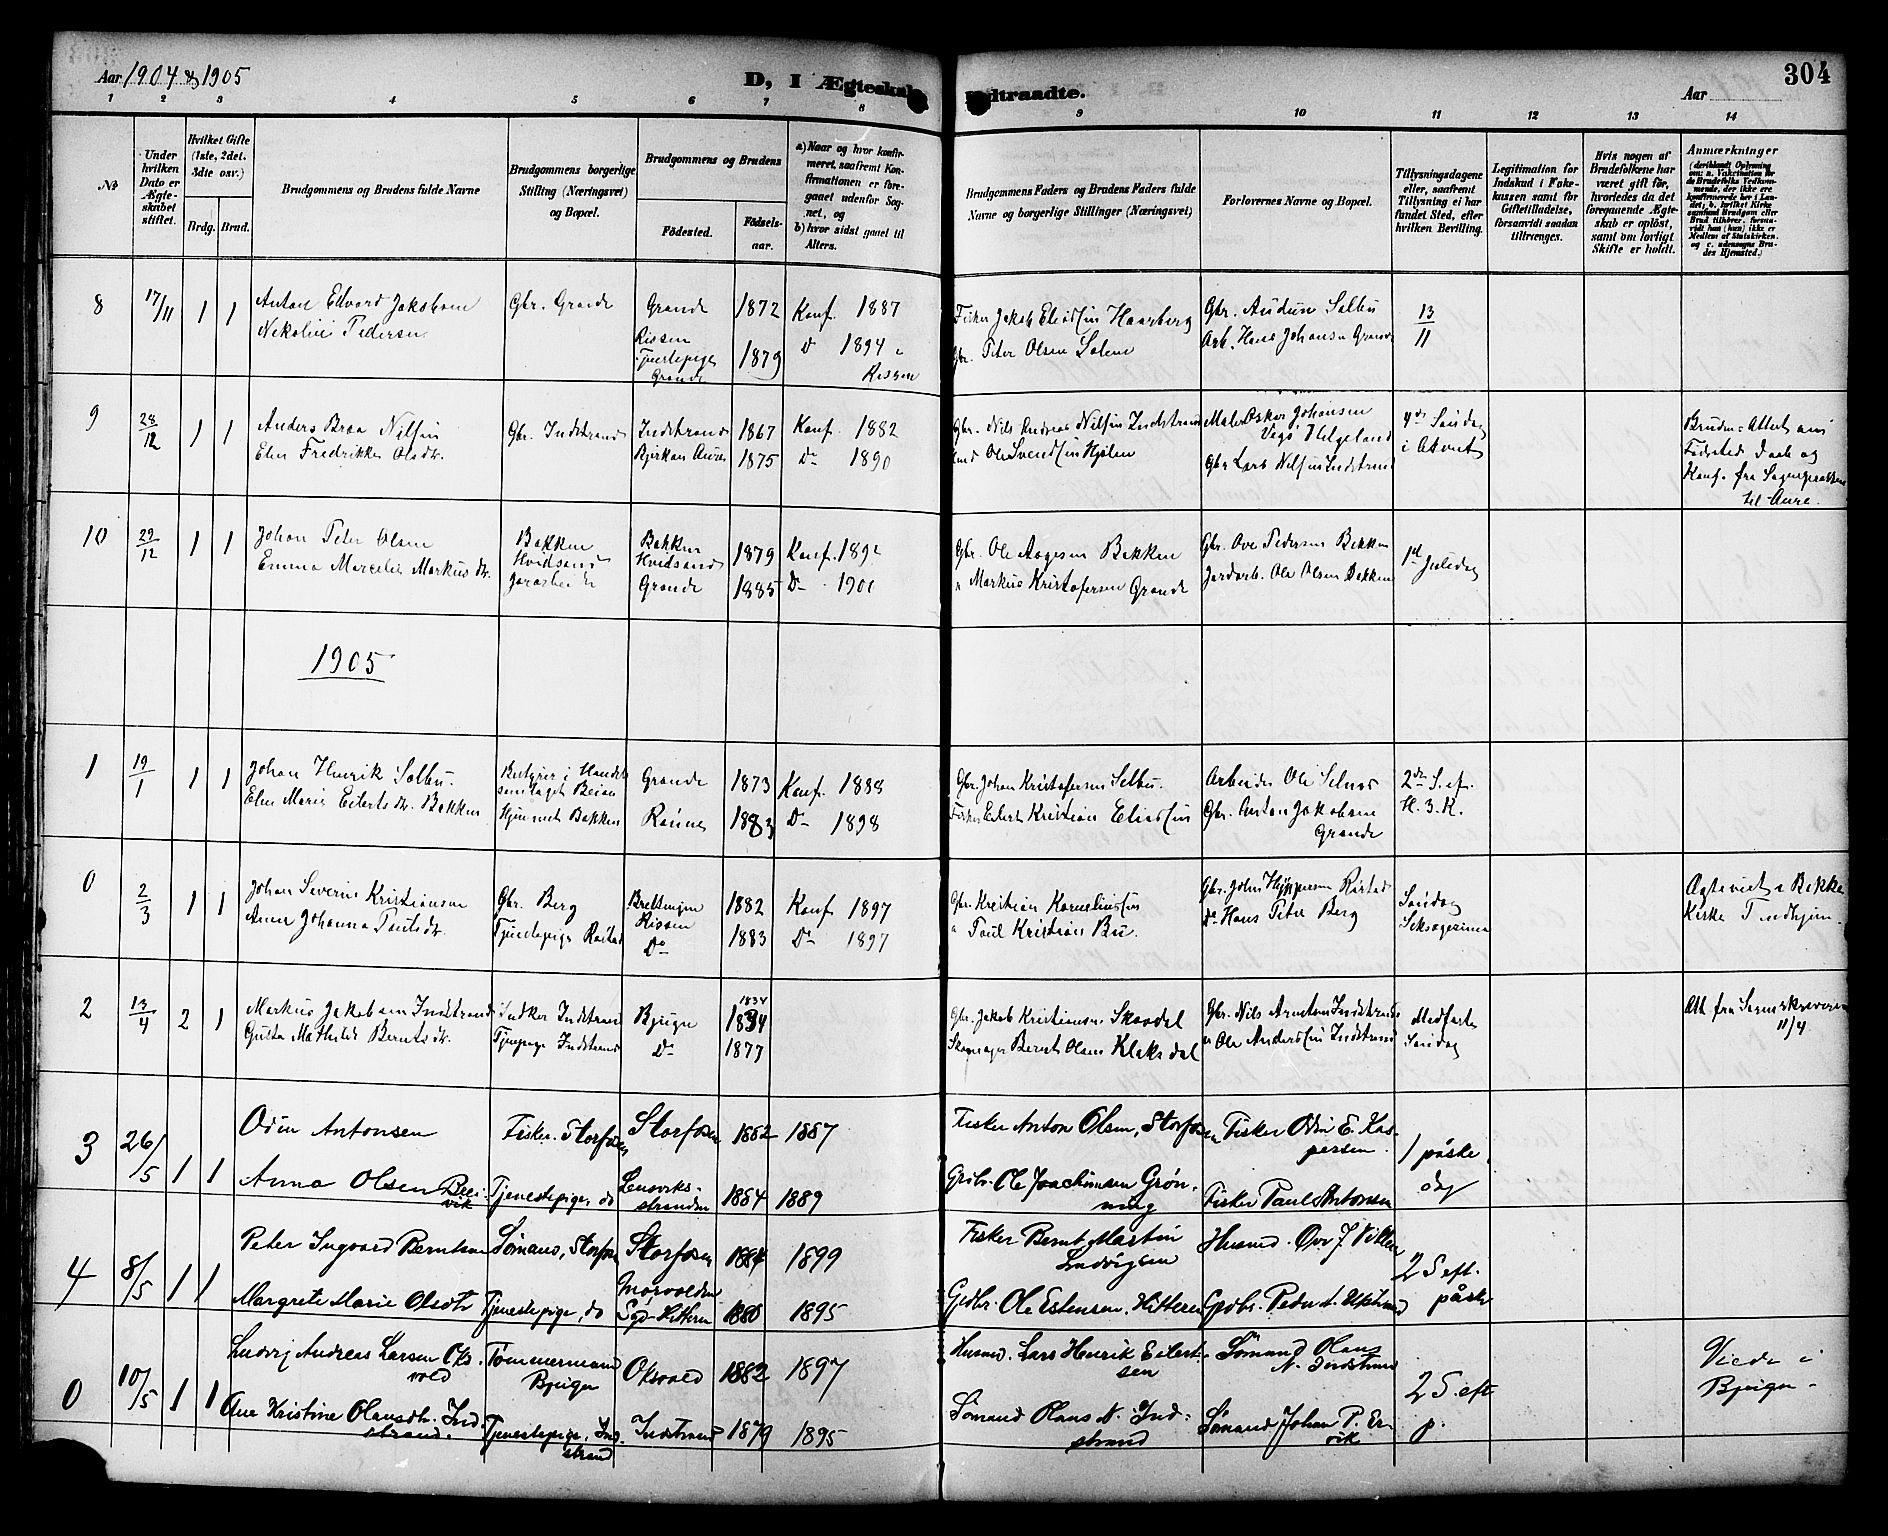 Aar 1904 & 1905
D, I Ægteskab Indtraadte.
Aar
304
1 2 3 4 5 6 7 8 9 10 11 12 13 14
No
Under hvilken Dato er Ægteskabet stiftet.
Hvilket Gifte (1ste, 2det, 3die osv.)
Brdg. Brud.
Brudgommens og Brudens fulde Navne
Brudgommens borgerlige Stilling (Næringsvei) og Bopæl.
Brudgommens og Brudens
Födested. Födselsaar.
a) Naar og hvor konfirmeret, saafremt Konfirmationen er foregaaet udenfor Sognet, og
b) hvor sidst gaaet til Alters.
Brudgommens Faders og Brudens Faders fulde Navne og borgerlige Stillinger (Næringsvei)
Forlovernes Navne og Bopæl.
Tillysningsdagene eller, saafremt Tillysning ei har fundet Sted, efter hvilken Bevilling.
Legitimation for Indskud i Enkekassen samt for Giftetilladelse, forsaavidt saadan tiltrænges.
Hvis nogen af Brudefolkene har været gift för, hvorledes da det foregaaende Ægteskab er oplöst, samt om lovligt Skifte er holdt.
Anmærkninger
8 17/11 1 1 Anton Edvard Jakobsen Gbr. Grande Grande 1872 Konf. 1887 Fisker Jakob Eliassen Haarberg Gbr. Audun Selbu 13/11
Nekoline Pedersen Rissen Tjenestepige Grande 1879 Do 1894 i Rissen Gbr. Peter Olsen Solem Arb. Hans Johansen Grande
9 28/12 1 1 Anders Braa Nilsen Gbr. Indstrand Indstrand 1867 Konf. 1882 Gbr. Nils Andreas Nilsen Indstrand Maler Oskar Johansen Vegö Helgeland 4de Søndag i Advent
Elen Fredrikke Olsdtr. Bjerkan Aure 1875 Do 1890 Ole Svendsen Hjelen Gbr. Lars Nilsen Indstrand
Brudens Attest om Fødested Daab og Konf. fra Sognepræsten til Aure.
10 29/12 1 1 Johan Peter Olsen Bakken Hvidsand Bakken Hvidsand 1879 Konf. 1892 Gbr. Ole Aagesen Bakken Gbr. Ove Pedersen Bakken 1st Juledag
Emma Marcelie Markusdtr. Grande 1885 Do 1900 " Markus Kristofersen Grande Jordarb. Ole Olsen Bakken
1905
1 19/1 1 1 Johan Henrik Selbu. Bestyrer i Handelssamlaget Beian Grande 1873 Konf. 1888 Gbr. Johan Kristofersen Selbu. Arbeider Ole Selnes 2den S. ef. H. 3. K.
Elen Marie Eilertsdtr. Bakken Hjemmet Bakken 1883 Do 1898 Fisker Eilert Kristian Eliassen Gbr. Anton Jakobsen Grande
0 2/3 1 1 Johan Severin Kristiansen Gbr. Berg Rissen 1882 Konf 1897 Gbr. Kristian Korneliussen Søndag Seksagesima
Anne Johanna Poulsdtr. Tjenestepige Do 1883 Do 1897 " Poul Kristian Bu. Do Hans Peter Berg
Ægteviet i Bakke Kirke
2 13/4 2 1 Markus Jakobsen Indstrand Inderst Indstrand Bjugn 1834 1834 Gbr. Jakob Kristiansen Skaadal Gbr. Nils Arntsen Indstrand Midfaste Søndag
Gusta Mathilde Berntsdtr. Tjenpige Indstrand Do 1877 Skomager Bernt Olsen Klaksdal " Ole Andersen Indstrand
11/4
3 26/5 1 1 Odin Antonsen Fisker. Storfosen Storfosen 1882 1887 Fisker Anton Olsen, Storfosen Fisker Odin E. Kaspersen. 1 påskedag
Anna Olsen Tjenestepige, do Lensviksstranden 1884 1889 Grdbr. Ole Joachimsen Grønning Fisker Paul Antonsen
4 8/5 1 1 Peter Ingvard Berntsen Sømand, Storfosen Storfosen 1884 1899 Fisker Bernt Martin Ludvigsen Husmd. Ove J. Vikken 2 S eft. påske
Margrete Marie Olsdtr. Tjenestepige, do Hitteren 1880 1895 Grdbr. Ole Estensen, Hitteren Grdbr. Peder A.
0 10/5 1 1 Ludvig Andreas Larsen Oksvold Tømmermand Bjugn Oksvold 1882 1897 Husmd. Lars Henrik Eilertsen Sømand Olaus N. Indstrand 2 S. eft. p.
Ane Kristine Olausdtr. Indstrand. Tjenestepige, Indstrand Indstrand 1879 1895 Sømand Olaus N. Indstrand Sømand Johan P. Ervik
Viede i Bjugn